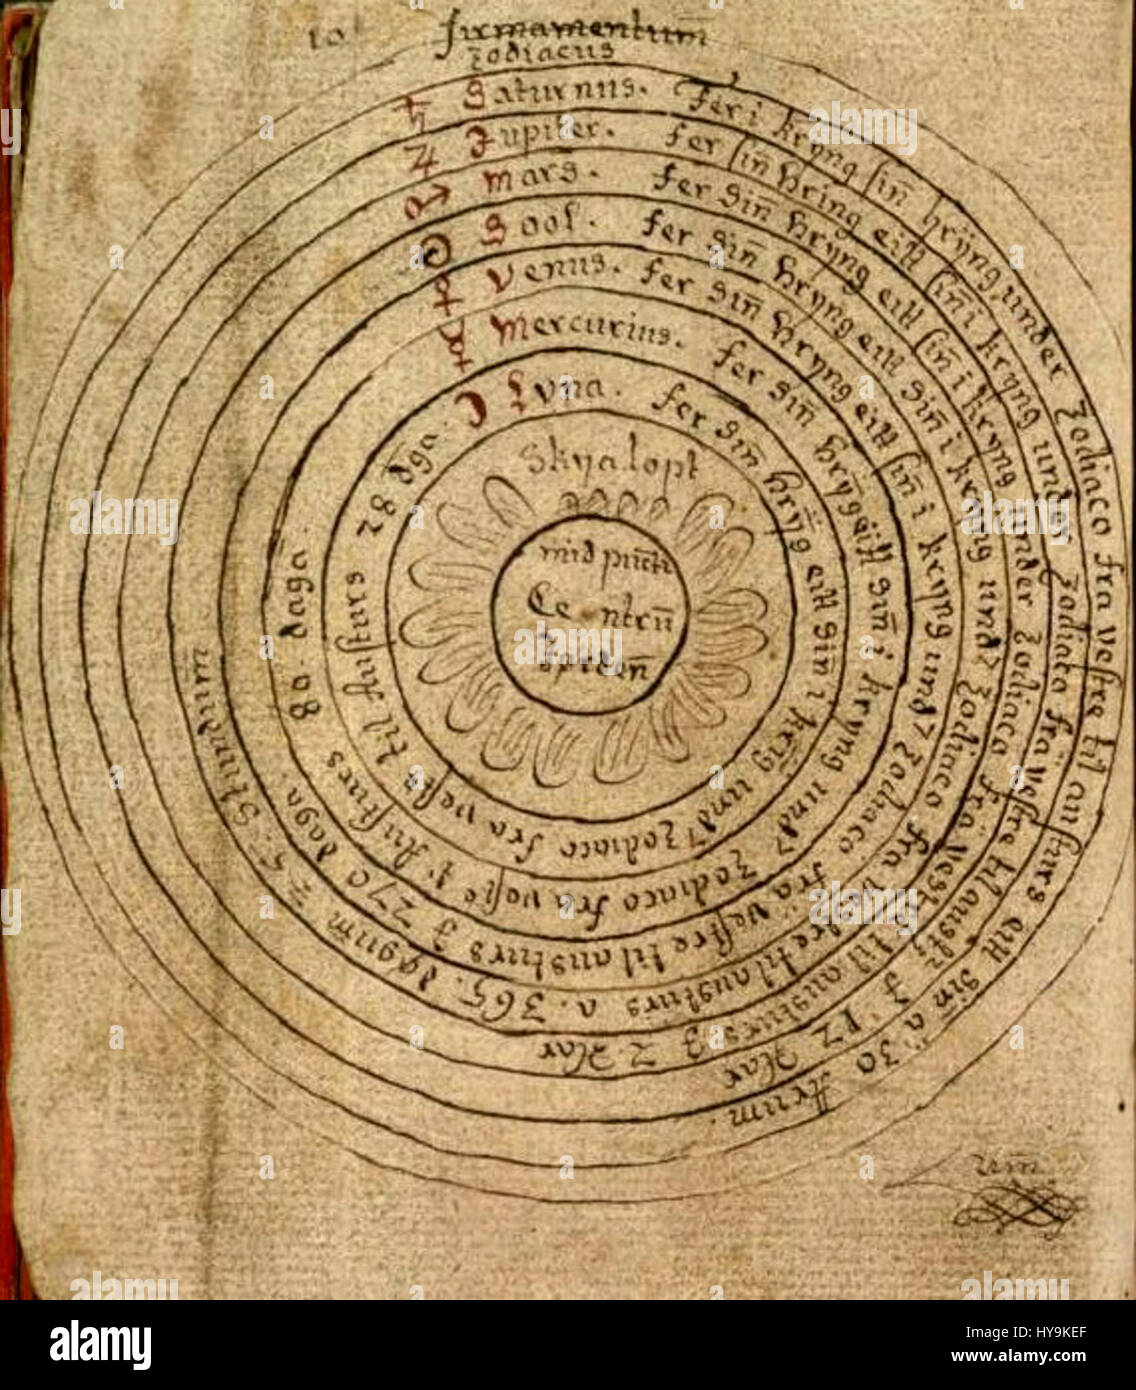 10
firmamentum̄
zodiacus
♄ Saturnus. fer i kryng sin̄ hrÿng under zodiaco fra vestre til austurs eitt sin̄ a 30 Arum.
♃ Jupiter. fer sin̄ hring eitt sin̄ i kryng under zodiaco fra vestre til 12 Aar
♂ Mars. fer sin̄ hryng eitt sin̄ i kryng under zodiaco fra vestre til austurs 2 Aar
☉ Sool. fer sin̄ hryng eitt sin̄ i kryng und zodiaco fra vestre til austurs a. 365. dagum
♀ Venus. fer sin̄ hryng eitt sin̄ i kryng und zodiaco fra vestre til austurs 270 daga.
☿ Mercurius. fer sin̄ hryng eitt sin̄ i kryng und zodiaco fra veste Austurs 80. daga.
☽ Lyna. fer sin̄ hryng eitt sin̄ i kring und zodiaco fra veste til Austurs 28 dga.
Skyalopt
mid
Centrū
a
alamy
HY9KEF
www.alamy.com